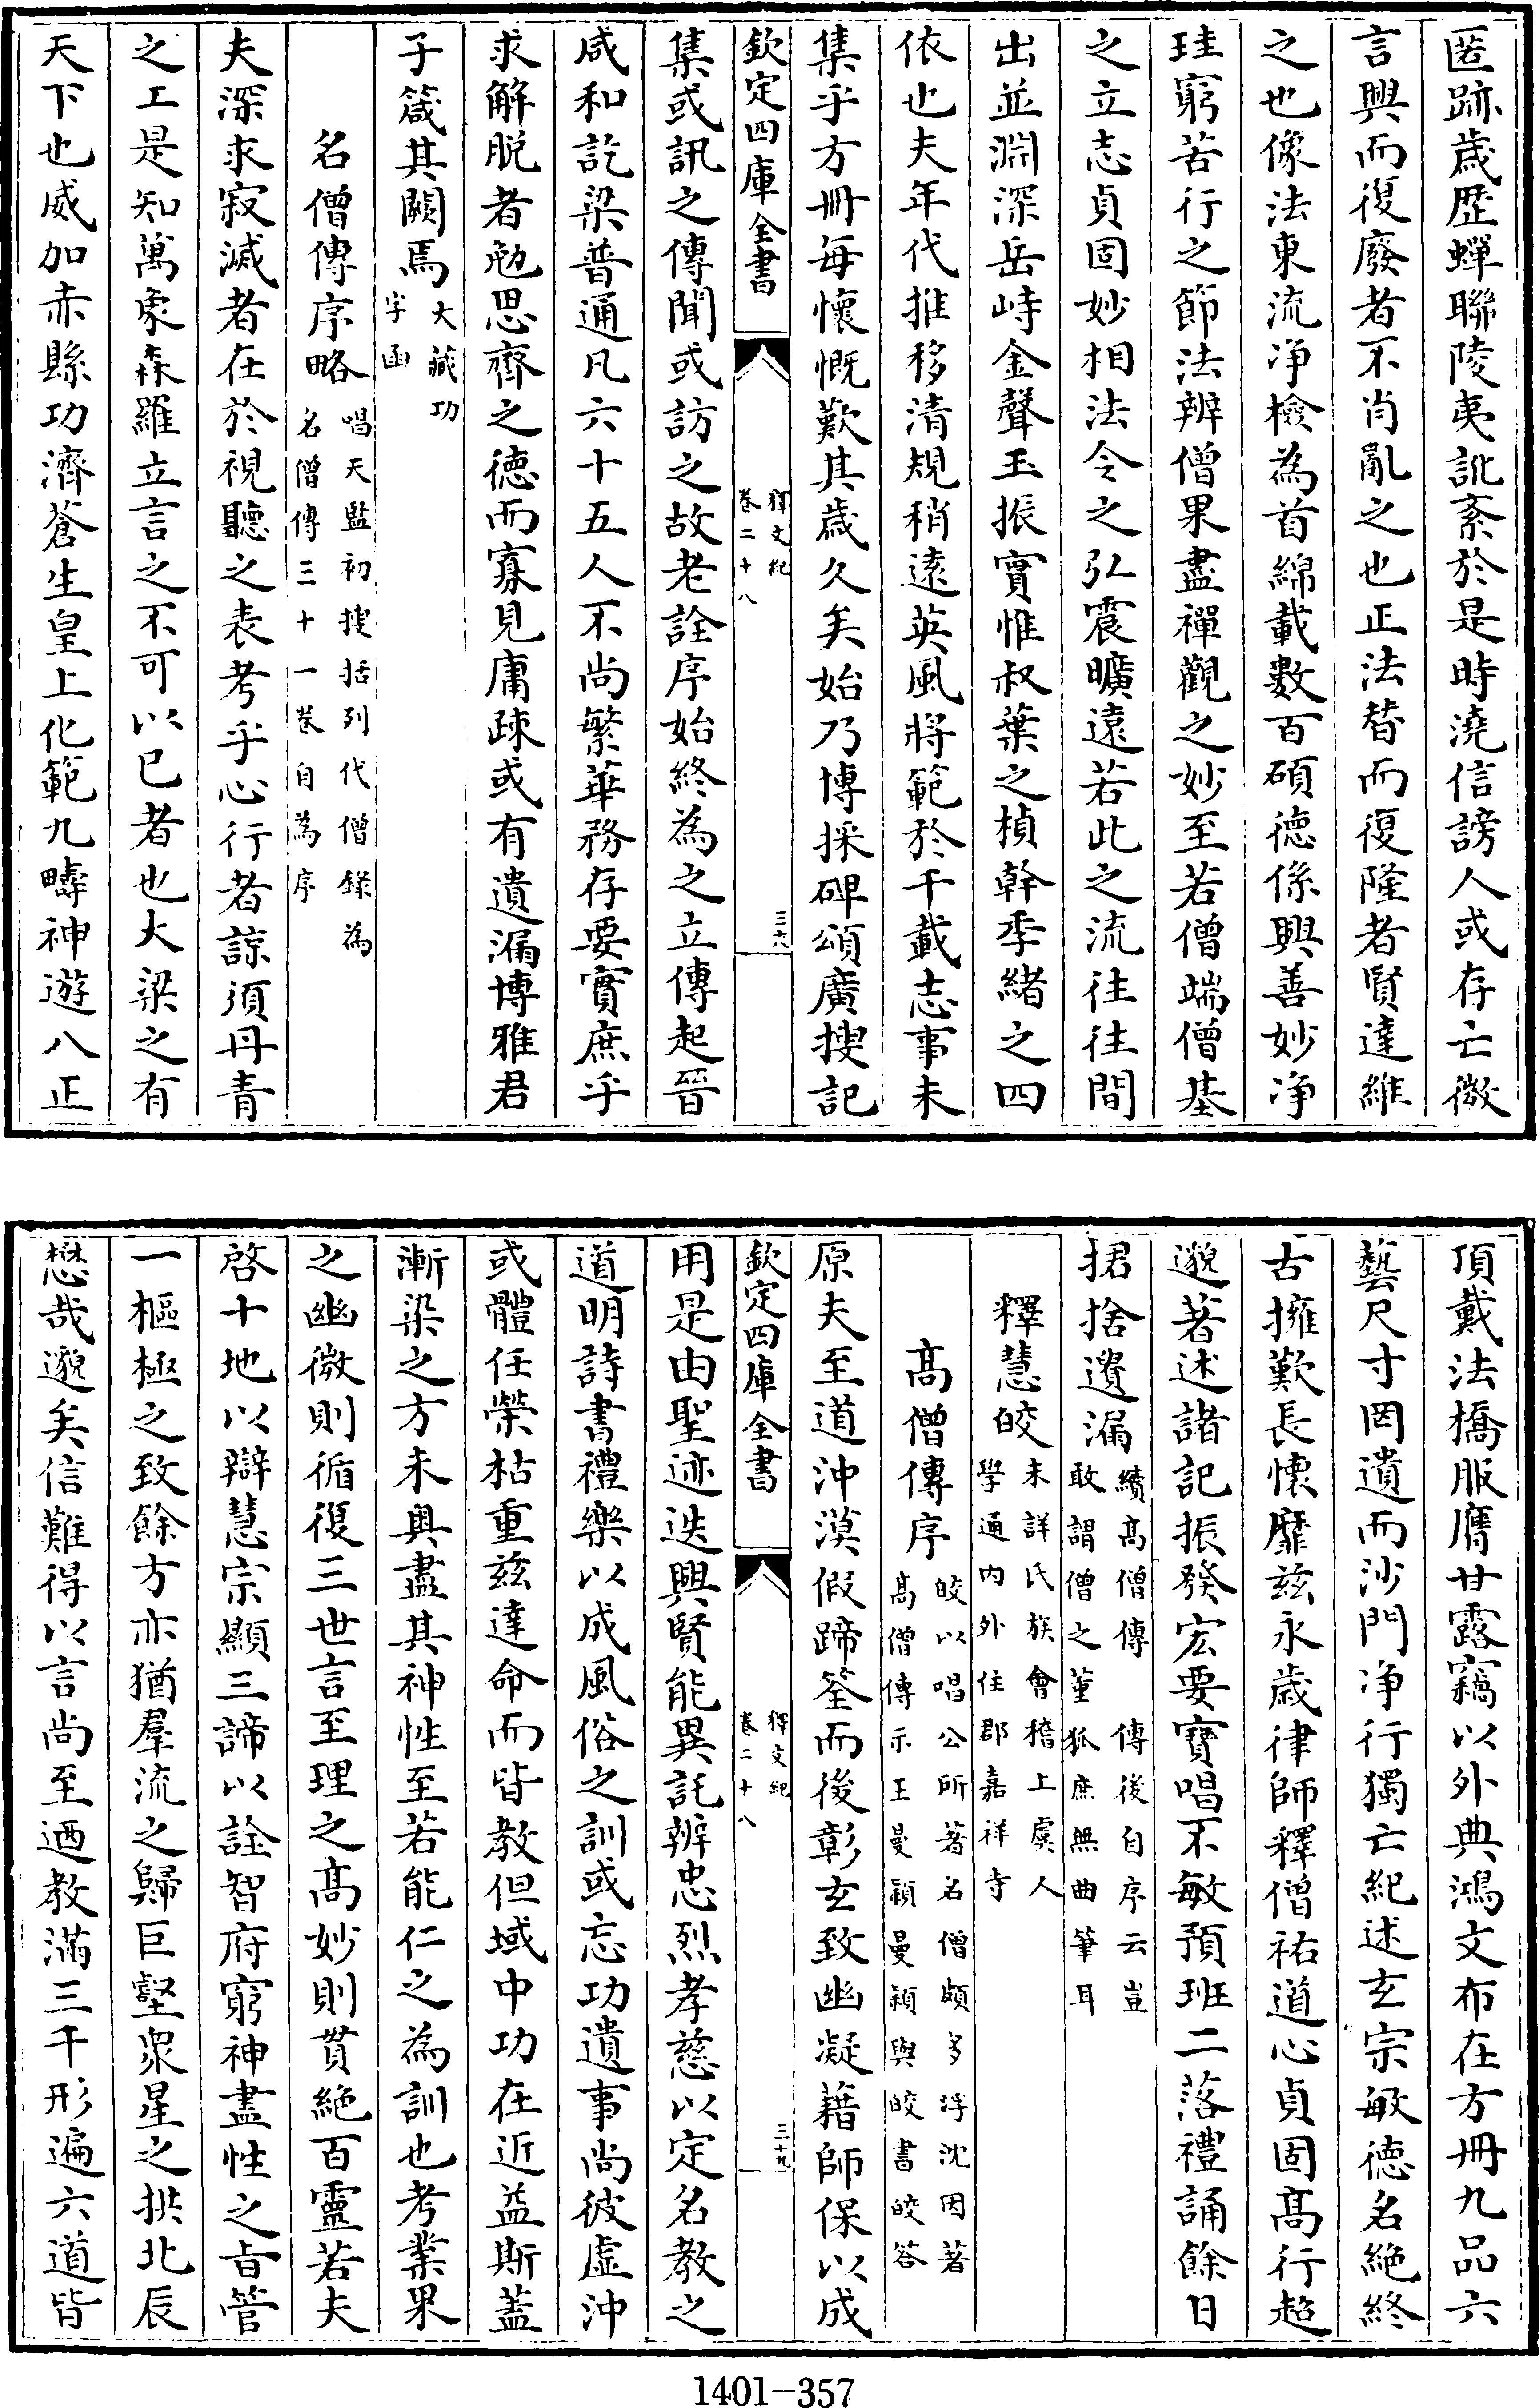 匿跡歲歴蟬聯陵夷訛紊於是時澆信謗人或存亡微
言興而復廢者不肖亂之也正法替而復隆者賢達維
之也像法東流净檢為首綿載數百碩德係興善妙净
珪窮苦行之節法辨僧果盡禪觀之妙至若僧端僧基
之立志貞固妙相法令之弘震曠遠若此之流往往間
出並淵深岳峙金聲玉振實惟叔葉之楨幹季緒之四
依也夫年代推移清規稍逺英風將範於千載志事未
集乎方冊毎懷慨歎其歲久矣始乃博採碑頌廣搜記
欽定四庫全書
釋文紀
卷二十八
三十八
集或訊之傳聞或訪之故老詮序始終為之立傳起晉
咸和訖梁普通凡六十五人不尚繁華務存要實庶乎
求解脱者勉思齊之德而寡見庸疎或有遺漏博雅君
子箴其闕焉大藏功
字函
名僧傳序略唱天監初搜括列代僧錄為
名僧傳三十一卷自為序
夫深求寂滅者在於視聽之表考乎心行者諒須丹青
之工是知萬象森羅立言之不可以已者也大梁之有
天下也威加赤縣功濟蒼生皇上化範九疇神遊八正
頂戴法橋服膺甘露竊以外典鴻文布在方冊九品六
藝尺寸罔遺而沙門净行獨亡紀述玄宗敏德名絶終
古擁歎長懷靡兹永歲律師釋僧祐道心貞固髙行超
邈著述諸記振發宏要寶唱不敏預班二落禮誦餘日
捃捨遺漏續高僧傳　傳後自序云豈
敢謂僧之董狐庶無曲筆耳
釋慧皎未詳氏族會稽上虞人
學通内外住郡嘉祥寺
髙僧傳序皎以唱公所著名僧頗多浮沈因著
髙僧傳示王曼穎曼穎與皎書皎答
原夫至道沖漠假蹄筌而後彰玄致幽凝藉師保以成
欽定四庫全書
釋文紀
卷二十八
三十九
用是由聖迹迭興賢能異託辨忠烈孝慈以定名教之
道明詩書禮樂以成風俗之訓或忘功遺事尚彼虛沖
或體任榮枯重兹達命而皆教但域中功在近益斯蓋
漸染之方未奥盡其神性至若能仁之為訓也考業果
之幽微則循復三世言至理之髙妙則貫絶百靈若夫
啓十地以辯慧宗顯三諦以詮智府窮神盡性之㫖管
一樞極之致餘方亦猶羣流之歸巨壑衆星之拱北辰
懋哉邈矣信難得以言尚至迺教滿三千形遍六道皆
1401-357